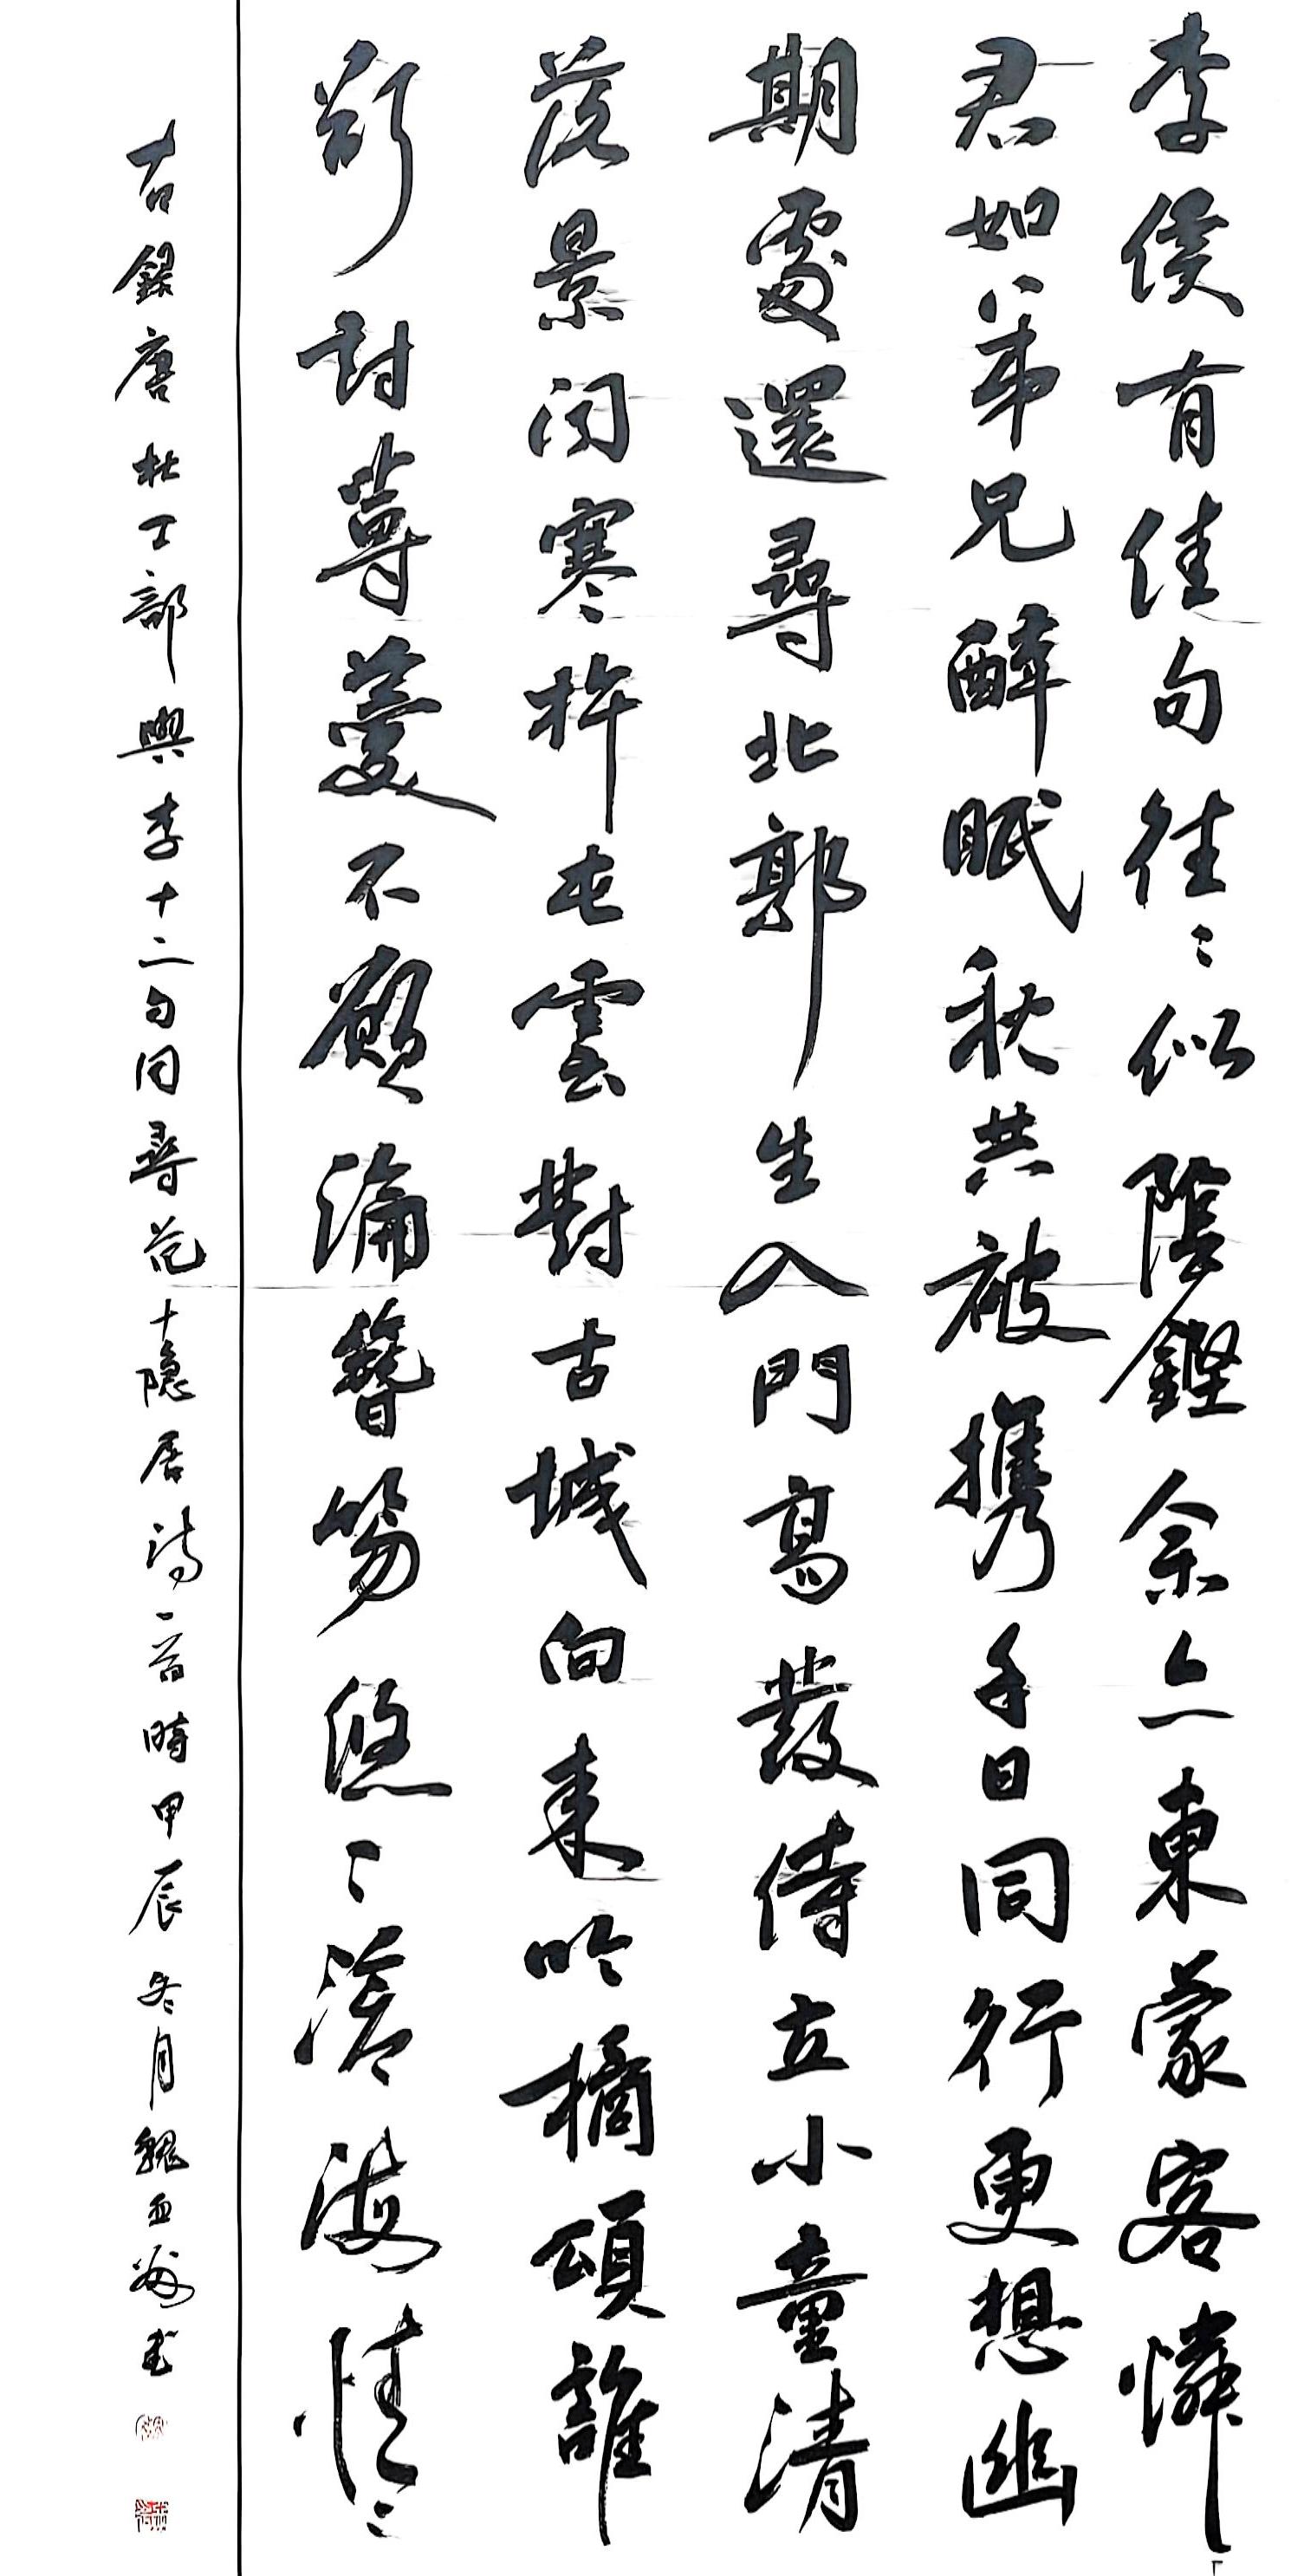 李侯有佳句往々似陰鏗余亦東蒙客憐
君如弟兄醉眠秋共被攜手日同行更想幽
期處還尋北郭生入門高發侍立小童清
落景聞寒杵屯雲對古城向來吟橘頌誰
欲討蓴羹不願論簪笏悠々滄海情
右錄唐杜工部與李十二白同尋范十隱居詩一首時甲辰冬月魏